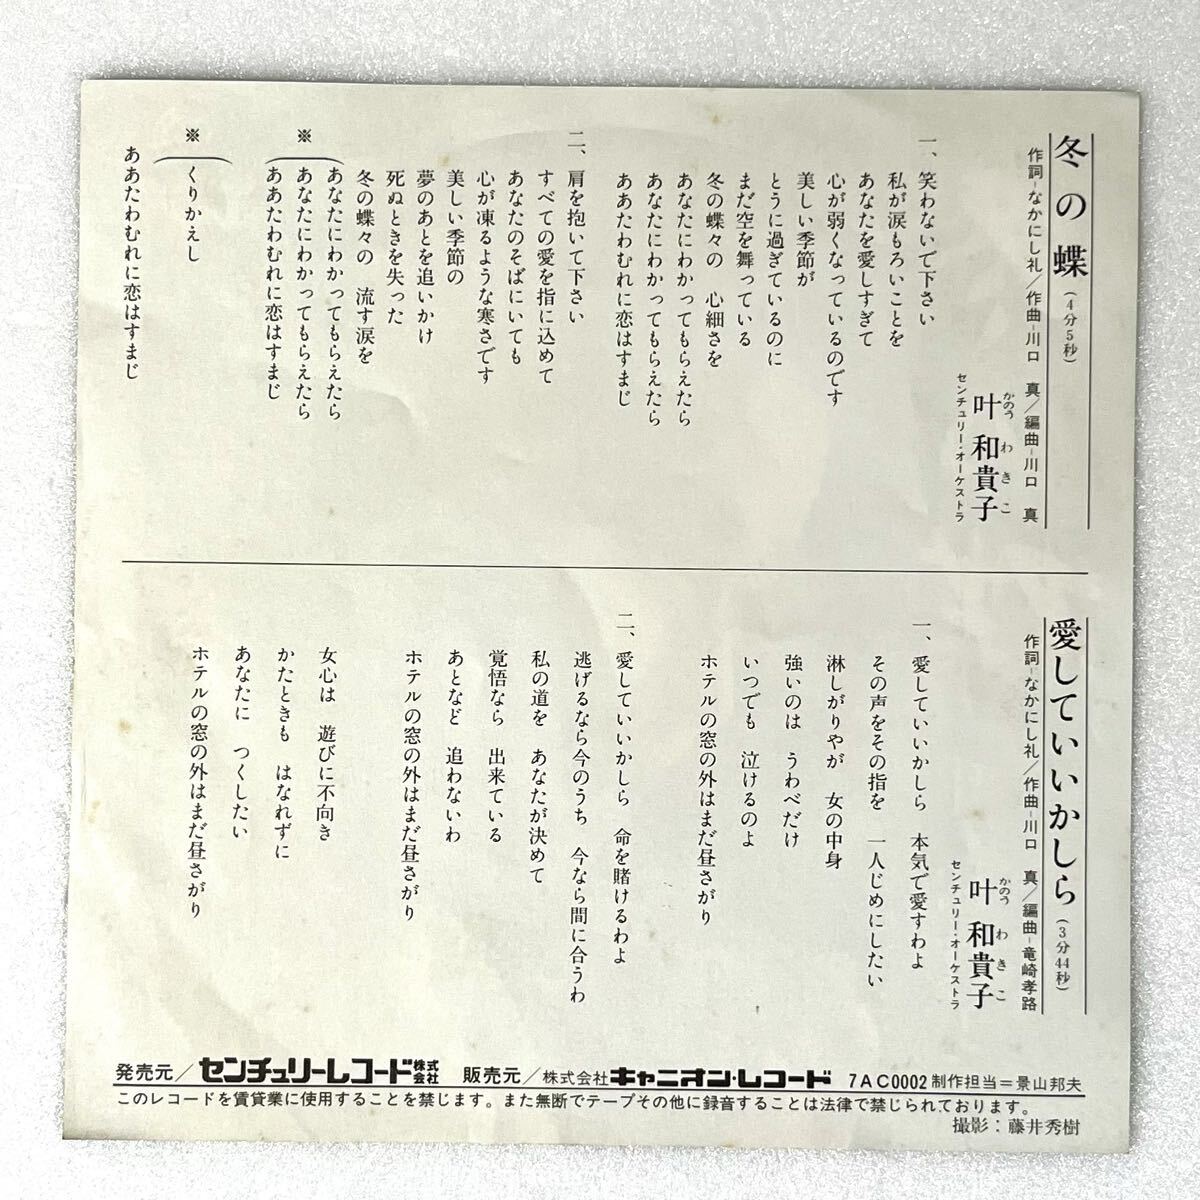 冬の蝶(4分5秒)
作詞-なかにし礼/作曲-川口 真/編曲-川口 真
かのう わきこ
叶 和貴子
センチュリー・オーケストラ
一、笑わないで下さい
私が涙もろいことを
あなたを愛しすぎて
心が弱くなっているのです
美しい季節が
とうに過ぎているのに
まだ空を舞っている
冬の蝶々の 心細さを
あなたにわかってもらえたら
あなたにわかってもらえたら
ああたわむれに恋はすまじ
二、肩を抱いて下さい
すべての愛を指に込めて
あなたのそばにいても
心が凍るような寒さです
美しい季節の
夢のあとを追いかけ
死ぬときを失った
冬の蝶々の 流す涙を
※(あなたにわかってもらえたら
あなたにわかってもらえたら
ああたわむれに恋はすまじ
※(くりかえし
ああたわむれに恋はすまじ
愛していいかしら(3分44秒)
作詞 なかにし礼/作曲-川口 真/編曲-竜崎孝路
かのう わきこ
叶 和貴子
センチュリー・オーケストラ
一、愛していいかしら 本気で愛すわよ
その声をその指を 一人じめにしたい
淋しがりやが 女の中身
強いのは うわべだけ
いつでも 泣けるのよ
ホテルの窓の外はまだ昼さがり
二、愛していいかしら 命を賭けるわよ
逃げるなら今のうち 今なら間に合うわ
私の道を あなたが決めて
覚悟なら 出来ている
あとなど 追わないわ
ホテルの窓の外はまだ昼さがり
女心は 遊びに不向き
かたときも はなれずに
あなたに つくしたい
ホテルの窓の外はまだ昼さがり
発売元/センチュリーレコード株式会社 販売元/株式会社キャニオン・レコード 7AC0002 制作担当=景山邦夫
このレコードを賃貸業に使用することを禁じます。また無断でテープその他に録音することは法律で禁じられております。
撮影:藤井秀樹